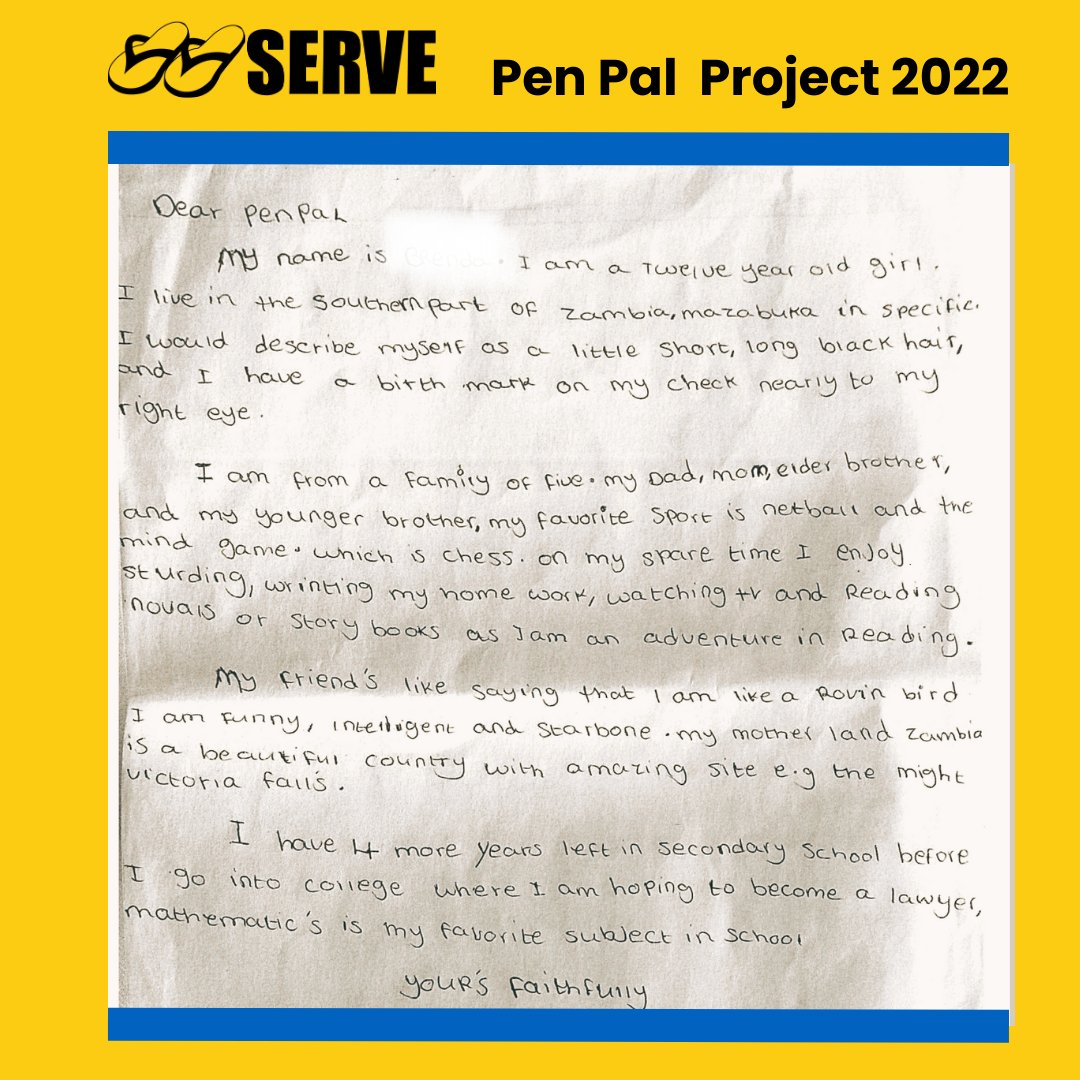 SERVE
Pen Pal Project 2022
Dear penpal
My name is . I am a Twelve year old girl.
I live in the Southern part of Zambia, mazabuka in specific.
I would describe myself as a little short, long black hair,
and I have a birth mark on my check nearly to my
right eye.
I am from a family of five. my Dad, mom, elder brother,
and my younger brother, my favorite sport is netball and the
mind game. which is chess. on my spare time I enjoy.
sturding, wrinting my home work, watching tv and Reading
novals or Story books as I am an adventure in Reading.
My friend's like saying that I am like a Rovin bird
I am funny, intelligent and Starbone. my mother land Zambia
is a beautiful country with amazing site e.g the might
victoria fall's.
I have 4 more years left in secondary School before
I go into college where I am hoping to become a lawyer,
mathematic's is my favorite subject in School
your's faithfully